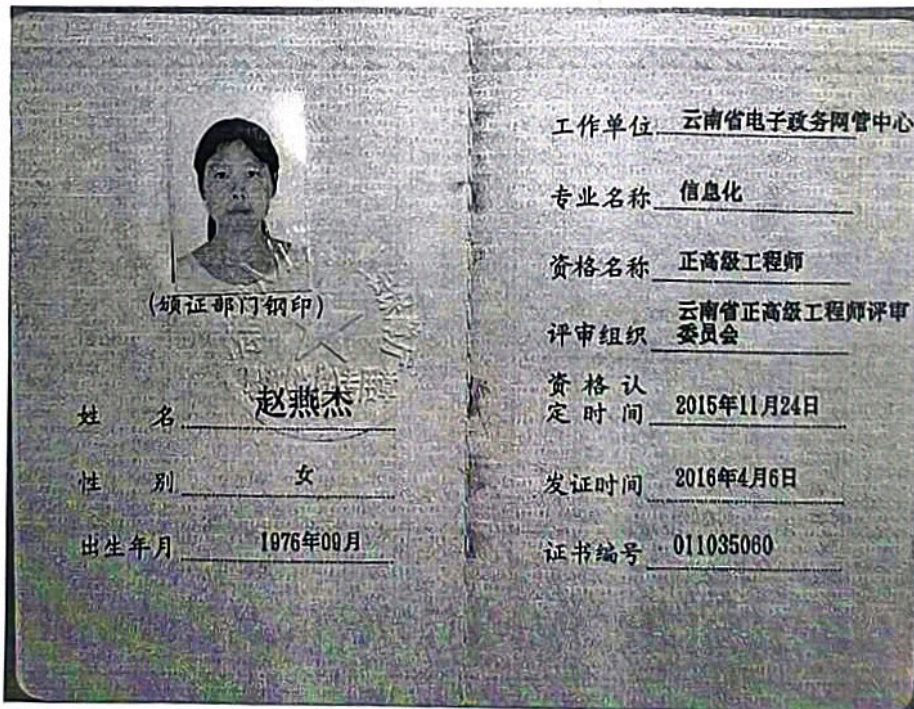 (颁证部门钢印)
姓 名 赵燕杰
性 别 女
出生年月 1976年09月
工作单位 云南省电子政务网管中心
专业名称 信息化
资格名称 正高级工程师
评审组织 云南省正高级工程师评审
委员会
资格认
定时间 2015年11月24日
发证时间 2016年4月6日
证书编号 011035060